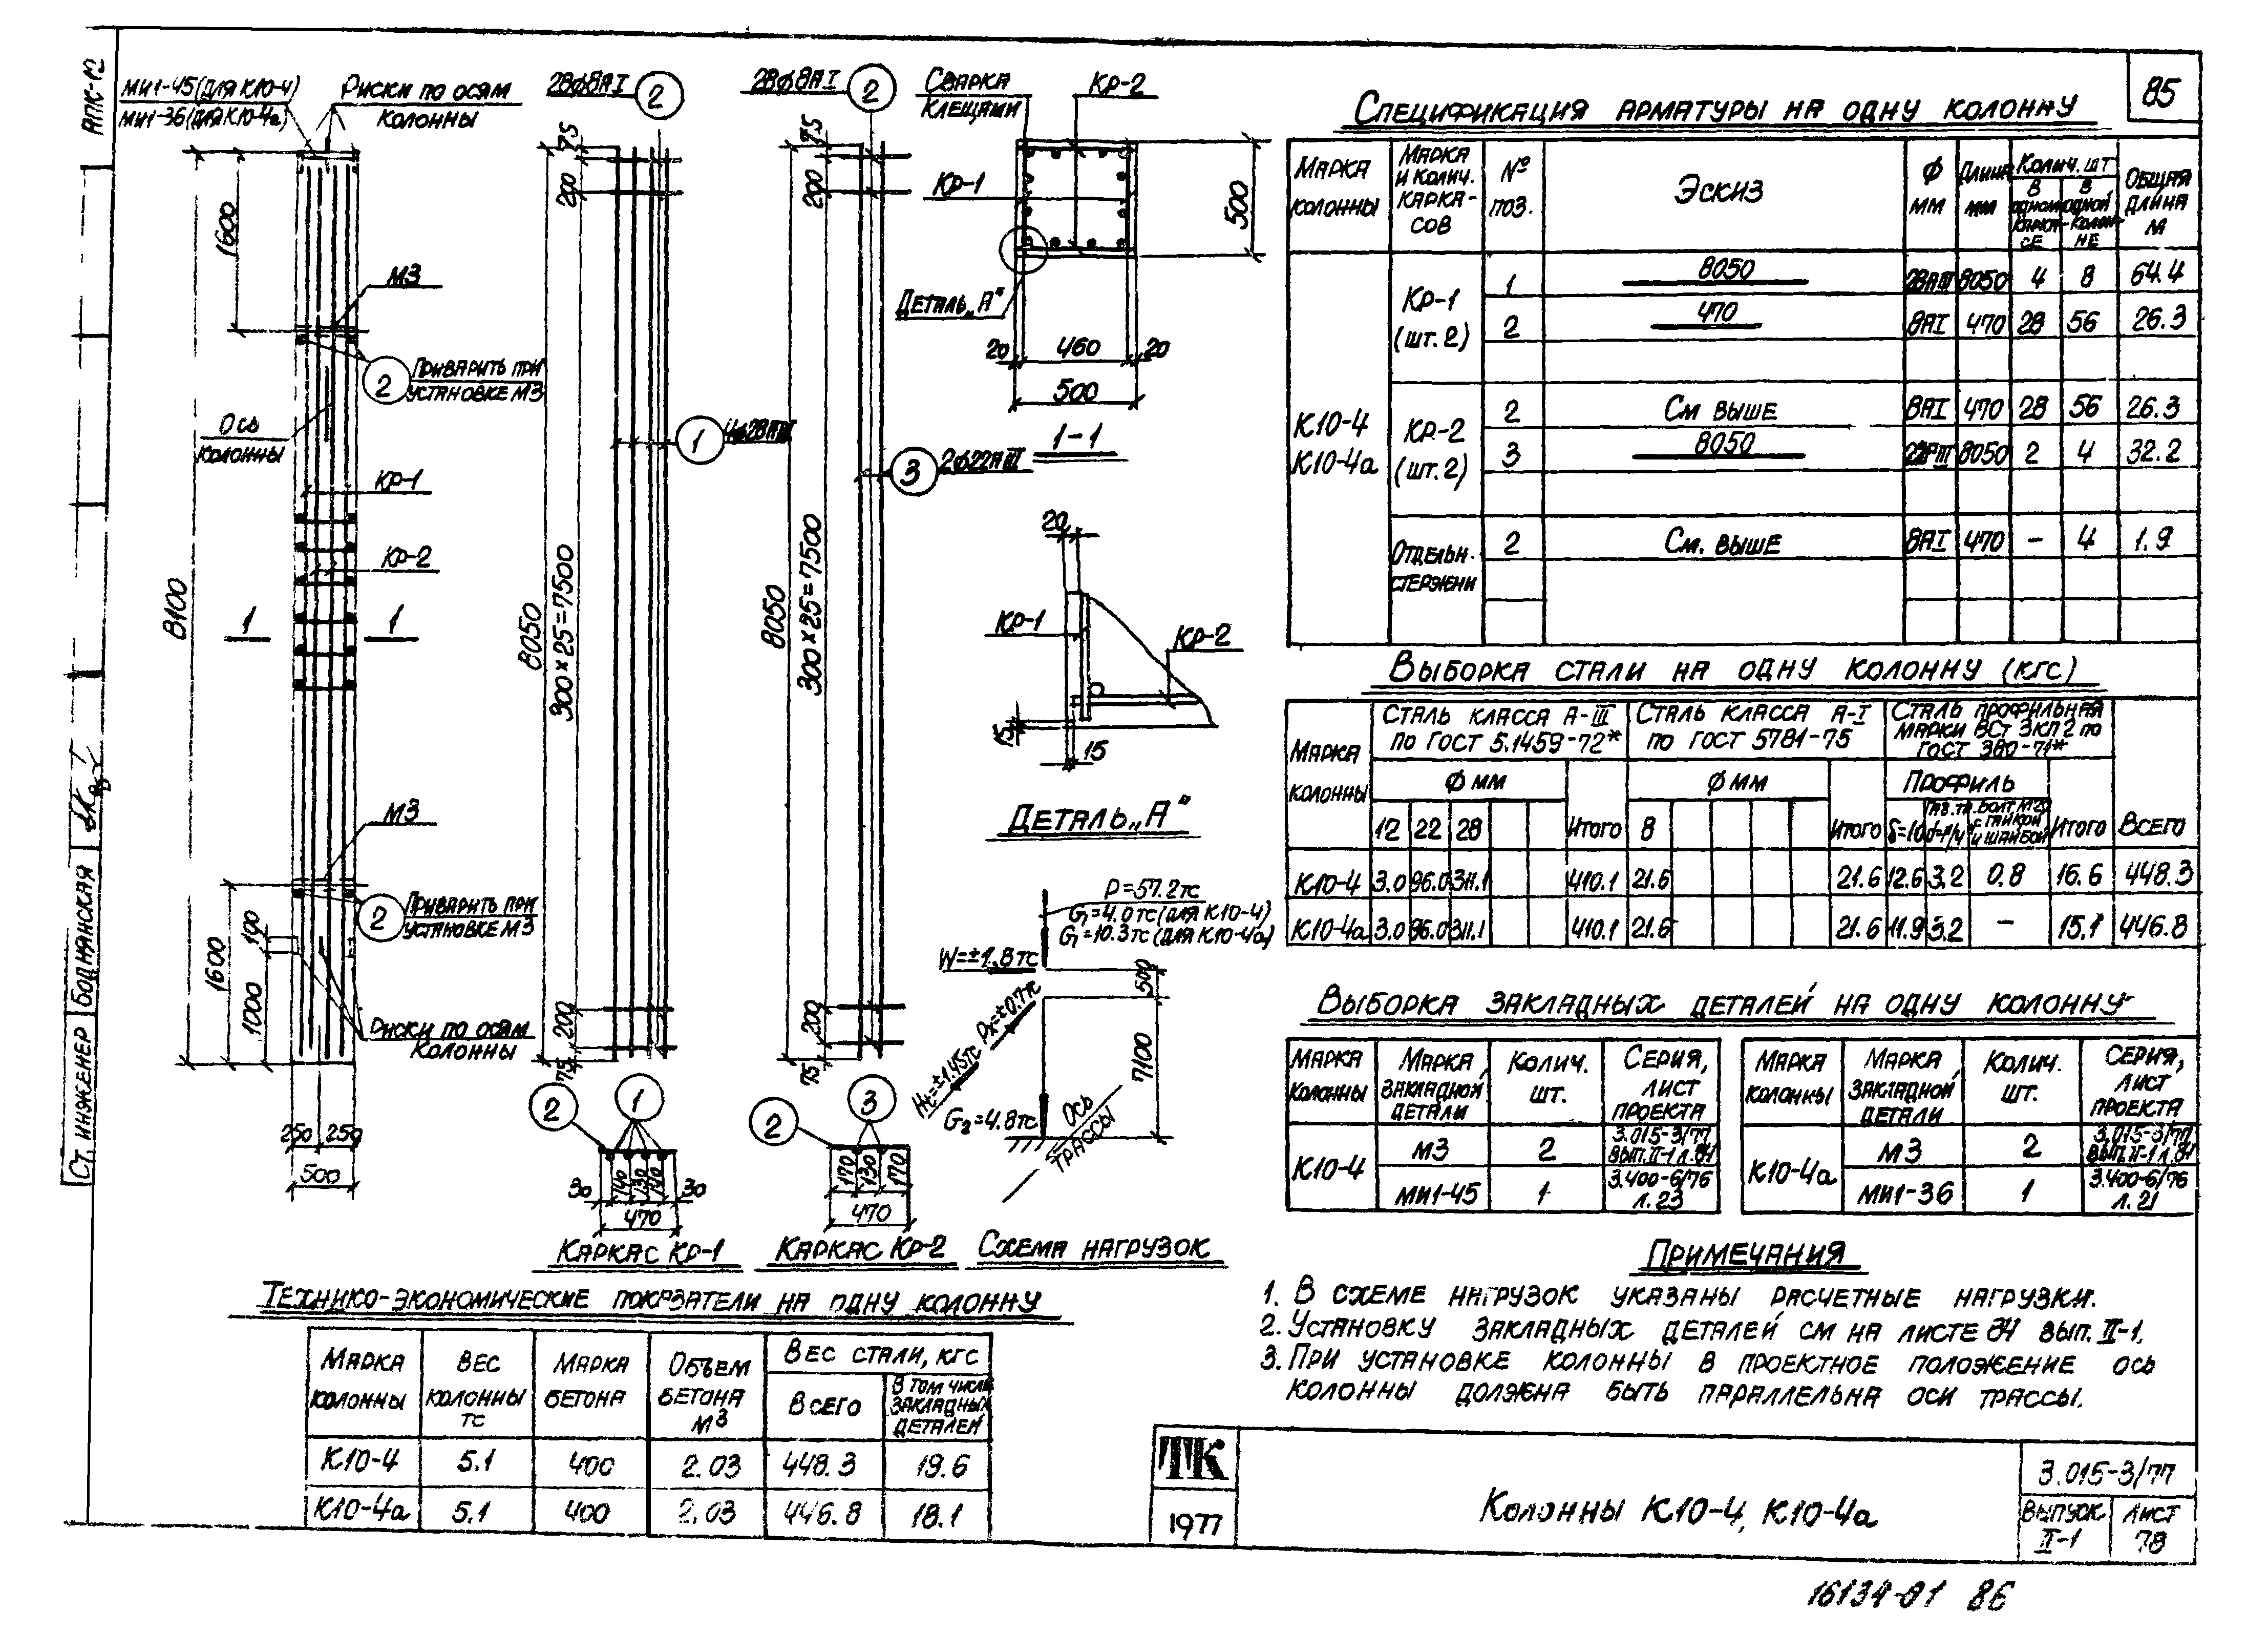 АПК-12
85
МИ1-45 (для К10-4)
МИ1-36 (для К10-4а)
Риски по осям
колонны
28ϕ8АI
2
28ϕ8АI
2
Сварка
клещами
Кр-2
Кр-1
Деталь „А"
500
20 460 20
500
1-1
75
200
8050
300×25=7500
200
75
75
200
8050
300×25=7500
200
75
1600
М3
2
Приварить при
установке М3
Ось
колонны
Кр-1
Кр-2
8100
1 1
М3
2
Приварить при
установке М3
100
1600
1000
Риски по осям
колонны
250 250
500
1
4ϕ28АIII
3
2ϕ22АIII
2 1
30 140 130 140 30
470
Каркас Кр-1
2 3
170 130 170
470
Каркас Кр-2
20
Кр-1
Кр-2
15
15
Деталь „А"
Р=57.2тс
G1=4.0тс (для К10-4)
G1=10.3тс (для К10-4а)
W=±1.8тс
Рк=±0.7тс
Нк=±1.45тс
G2=4.8тс
500
7100
Ось
трассы
Схема нагрузок
Спецификация арматуры на одну колонну
Марка колонны | Марка и колич. каркасов | № поз. | Эскиз | ϕ мм | Длина мм | Колич. шт | в одном каркасе | в одной колонне | Общая длина м
К10-4
К10-4а
Кр-1 (шт. 2) | 1 | 8050 | 28АIII | 8050 | 4 | 8 | 64.4
2 | 470 | 8АI | 470 | 28 | 56 | 26.3
Кр-2 (шт. 2) | 2 | См выше | 8АI | 470 | 28 | 56 | 26.3
3 | 8050 | 22АIII | 8050 | 2 | 4 | 32.2
Отдельн. стержни | 2 | См. выше | 8АI | 470 | - | 4 | 1.9
Выборка стали на одну колонну (кгс)
Марка колонны | Сталь класса А-III по ГОСТ 5.1459-72* | Сталь класса А-I по ГОСТ 5781-75 | Сталь профильная марки ВСт 3кп2 по ГОСТ 380-71* | Всего
ϕ мм | ϕ мм | Профиль
12 | 22 | 28 | Итого | 8 | Итого | δ=10 | Газ. тр. | Болт М20 с гайкой и шайбой | Итого
К10-4 | 3.0 | 96.0 | 311.1 | 410.1 | 21.6 | 21.6 | 12.6 | 3.2 | 0.8 | 16.6 | 448.3
К10-4а | 3.0 | 96.0 | 311.1 | 410.1 | 21.6 | 21.6 | 11.9 | 3.2 | - | 15.1 | 446.8
Выборка закладных деталей на одну колонну
Марка колонны | Марка закладной детали | Колич. шт. | Серия, лист проекта
К10-4 | М3 | 2 | 3.015-3/77 вып. II-1 л. 84
МИ1-45 | 1 | 3.400-6/76 л. 23
Марка колонны | Марка закладной детали | Колич. шт. | Серия, лист проекта
К10-4а | М3 | 2 | 3.015-3/77 вып. II-1 л. 84
МИ1-36 | 1 | 3.400-6/76 л. 21
Примечания
1. В схеме нагрузок указаны расчетные нагрузки.
2. Установку закладных деталей см на листе 84 вып. II-1.
3. При установке колонны в проектное положение ось
колонны должна быть параллельна оси трассы.
Технико-экономические показатели на одну колонну
Марка колонны | Вес колонны тс | Марка бетона | Объем бетона м3 | Вес стали, кгс | Всего | в том числе закладных деталей
К10-4 | 5.1 | 400 | 2.03 | 448.3 | 19.6
К10-4а | 5.1 | 400 | 2.03 | 446.8 | 18.1
ТК
1977
Колонны К10-4, К10-4а
3.015-3/77
Выпуск
II-1
Лист
78
Ст. инженер Боднянская
16134-01 86